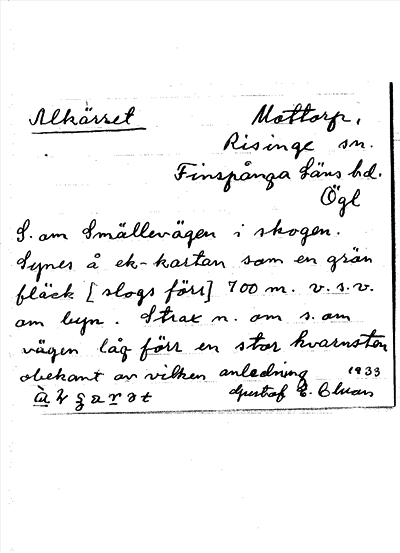 Alkärret
Mottorp,
Risinge sn.
Finspånga läns hd.
Ögl
S. om Smällevägen i skogen.
Synes å ek-kartan som en grön
fläck [slogs förr] 700 m. v.s.v.
om byn. Strax n. om s. om
vägen låg förr en stor kvarnsten
obekant av vilken anledning 1933
Gustaf E.